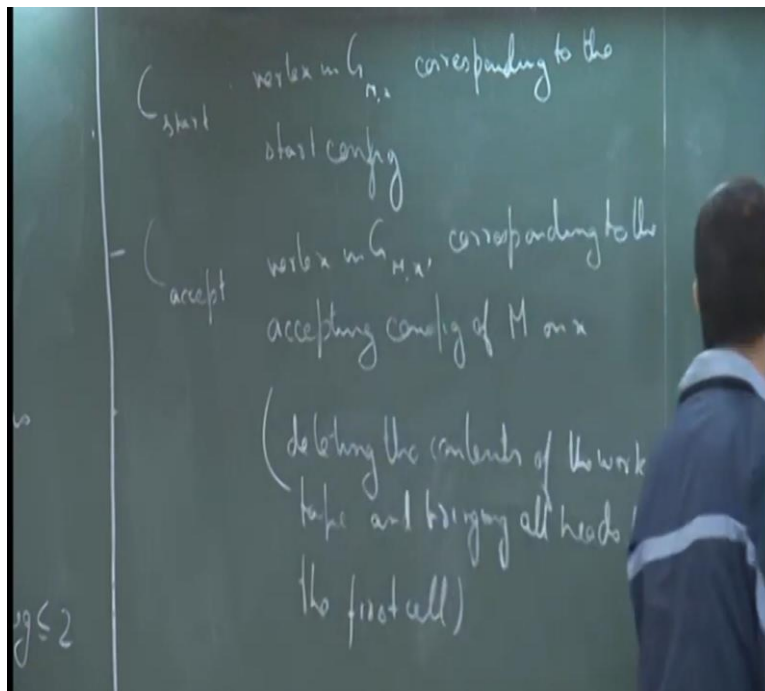 C_start vertex in G_M,x corresponding to the
start config
C_accept vertex in G_M,x, corresponding to the
accepting config of M on x
(deleting the contents of the work
tape and bringing all heads
the first cell)
g ≤ 2